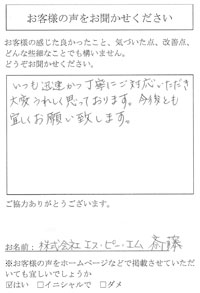 お客様の声をお聞かせください
お客様の感じた良かったこと、気づいた点、改善点、
どんな些細なことでも構いません。
どうぞお聞かせください。
いつも迅速かつ丁寧にご対応いただき
大変うれしく思っております。今後とも
宜しくお願い致します。
ご協力ありがとうございます。
お名前：株式会社エス・ピー・エム 斎藤
※お客様の声をホームページなどで掲載させていただ
いても宜しいでしょうか
☑はい □イニシャルで □ダメ